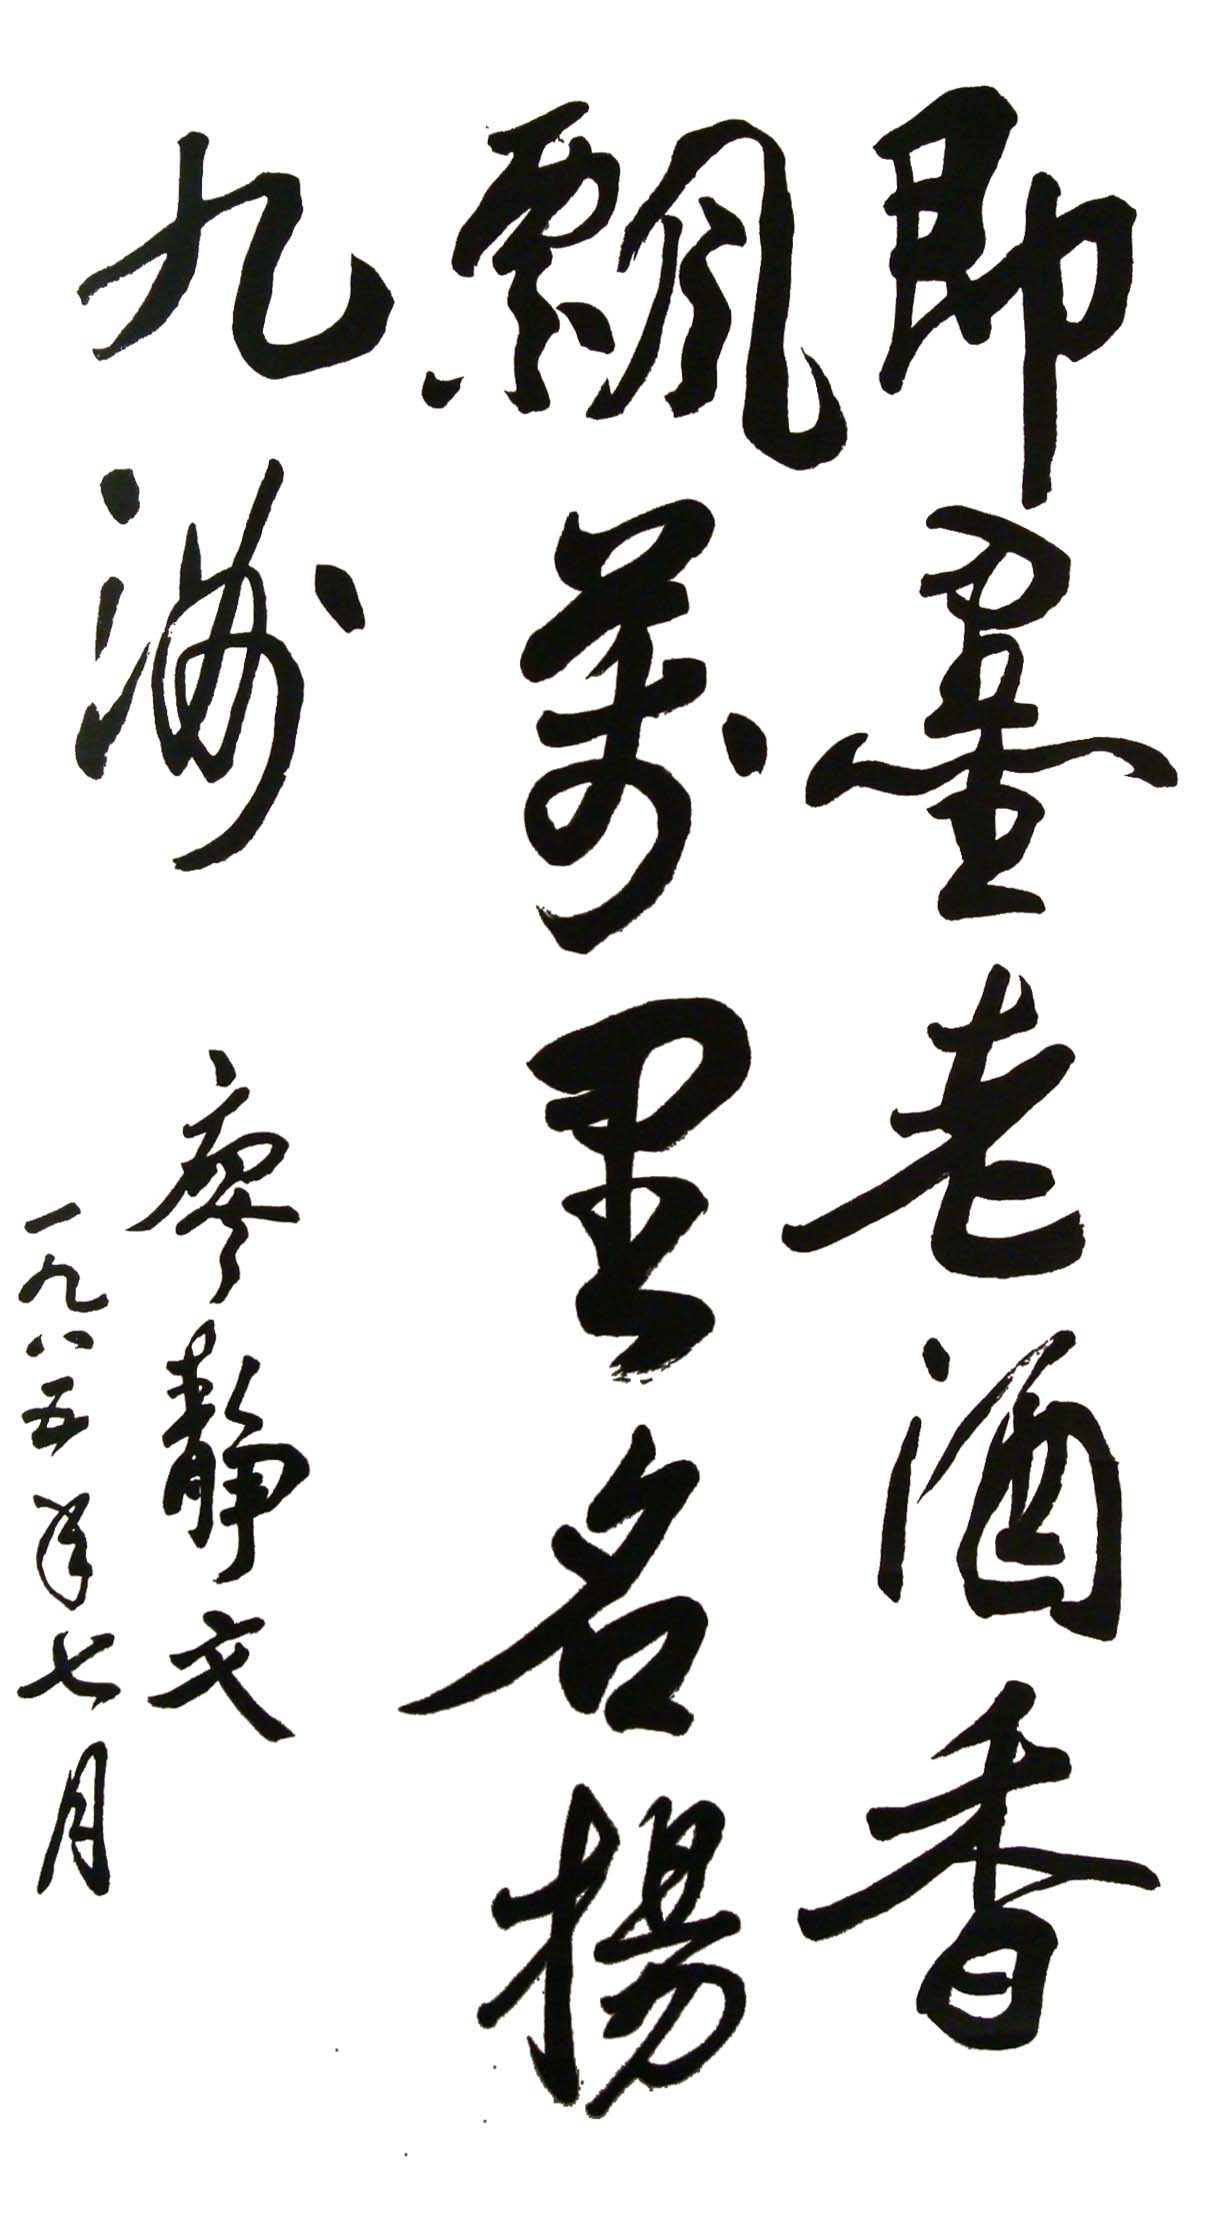 即墨老酒香
飄萬里名揚
九洲
廖靜文
一九八五年七月